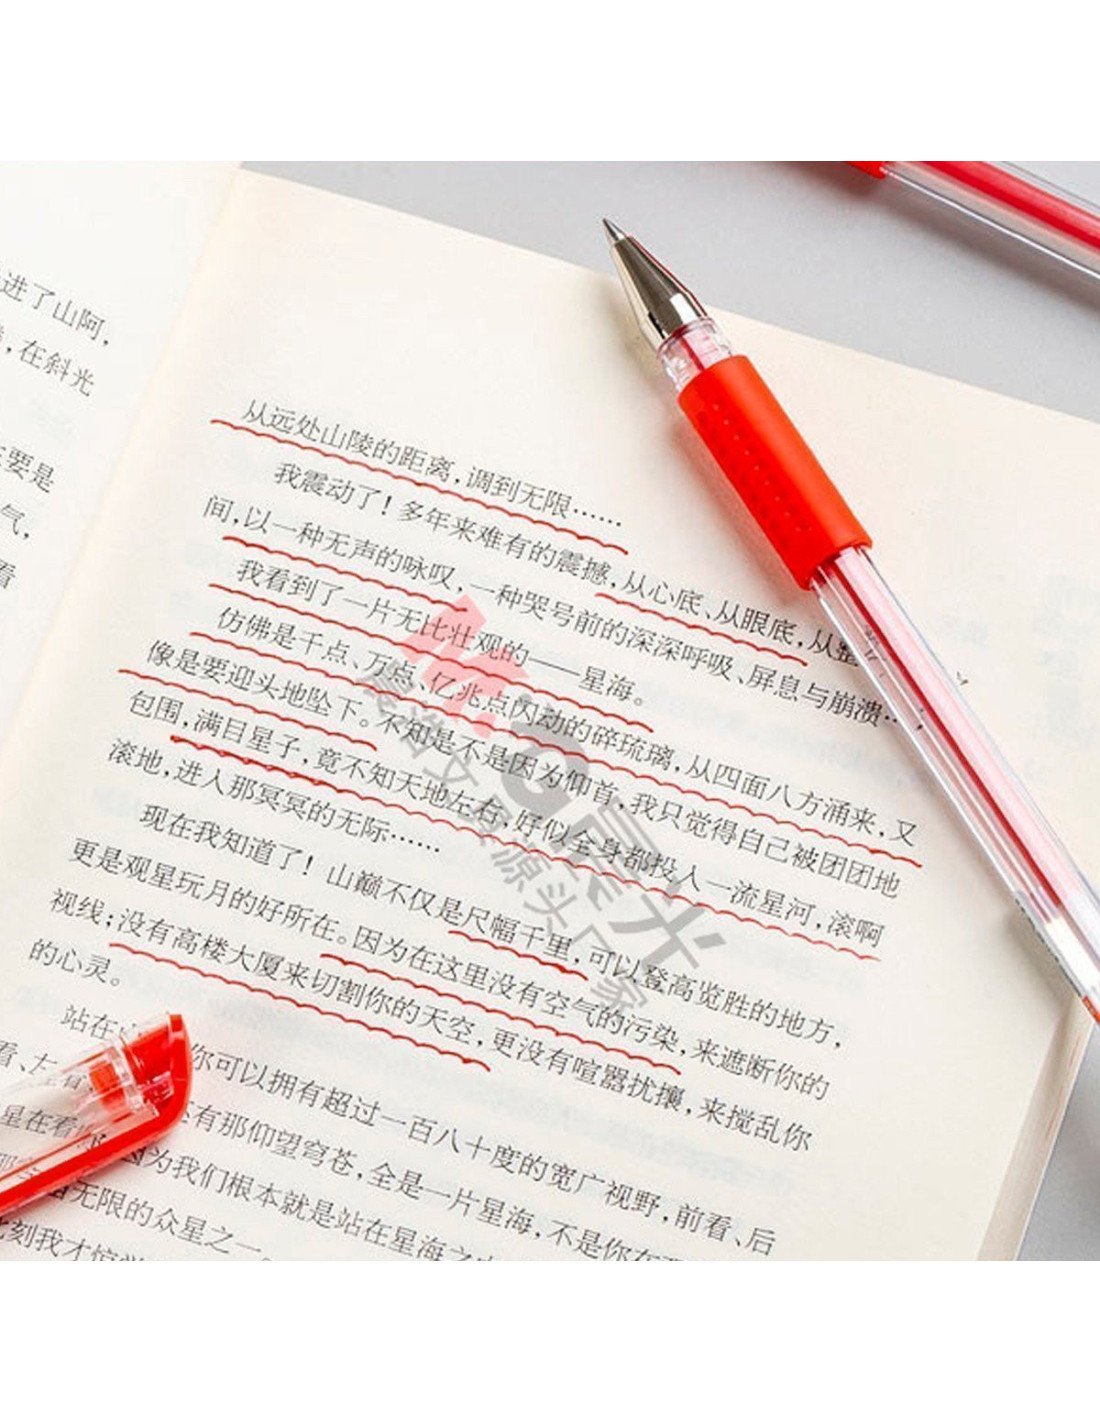 进了山阿，
，在斜光
要是
气，
看
从远处山陵的距离，调到无限……
我震动了！多年来难有的震撼，从心底、从眼底，从整
间，以一种无声的咏叹，一种哭号前的深深呼吸、屏息与崩溃…
我看到了一片无比壮观的——星海。
仿佛是千点、万点、亿兆点闪动的碎琉璃，从四面八方涌来，又
像是要迎头地坠下。不知是不是因为仰首，我只觉得自己被团团地
包围，满目星子，竟不知天地左右，好似全身都投入一流星河，滚啊
滚地，进入那冥冥的无际……
现在我知道了！山巅不仅是尺幅千里，可以登高览胜的地方，
更是观星玩月的好所在。因为在这里没有空气的污染，来遮断你的
视线；没有高楼大厦来切割你的天空，更没有喧嚣扰攘，来搅乱你
的心灵。
站在 你可以拥有超过一百八十度的宽广视野，前看、后
看、左看， 有那仰望穹苍，全是一片星海，不是你在
星在看你 因为我们根本就是站在星海之
无限的众星之一。
此刻我才恍
M&G晨光
晨洛文具源头厂家